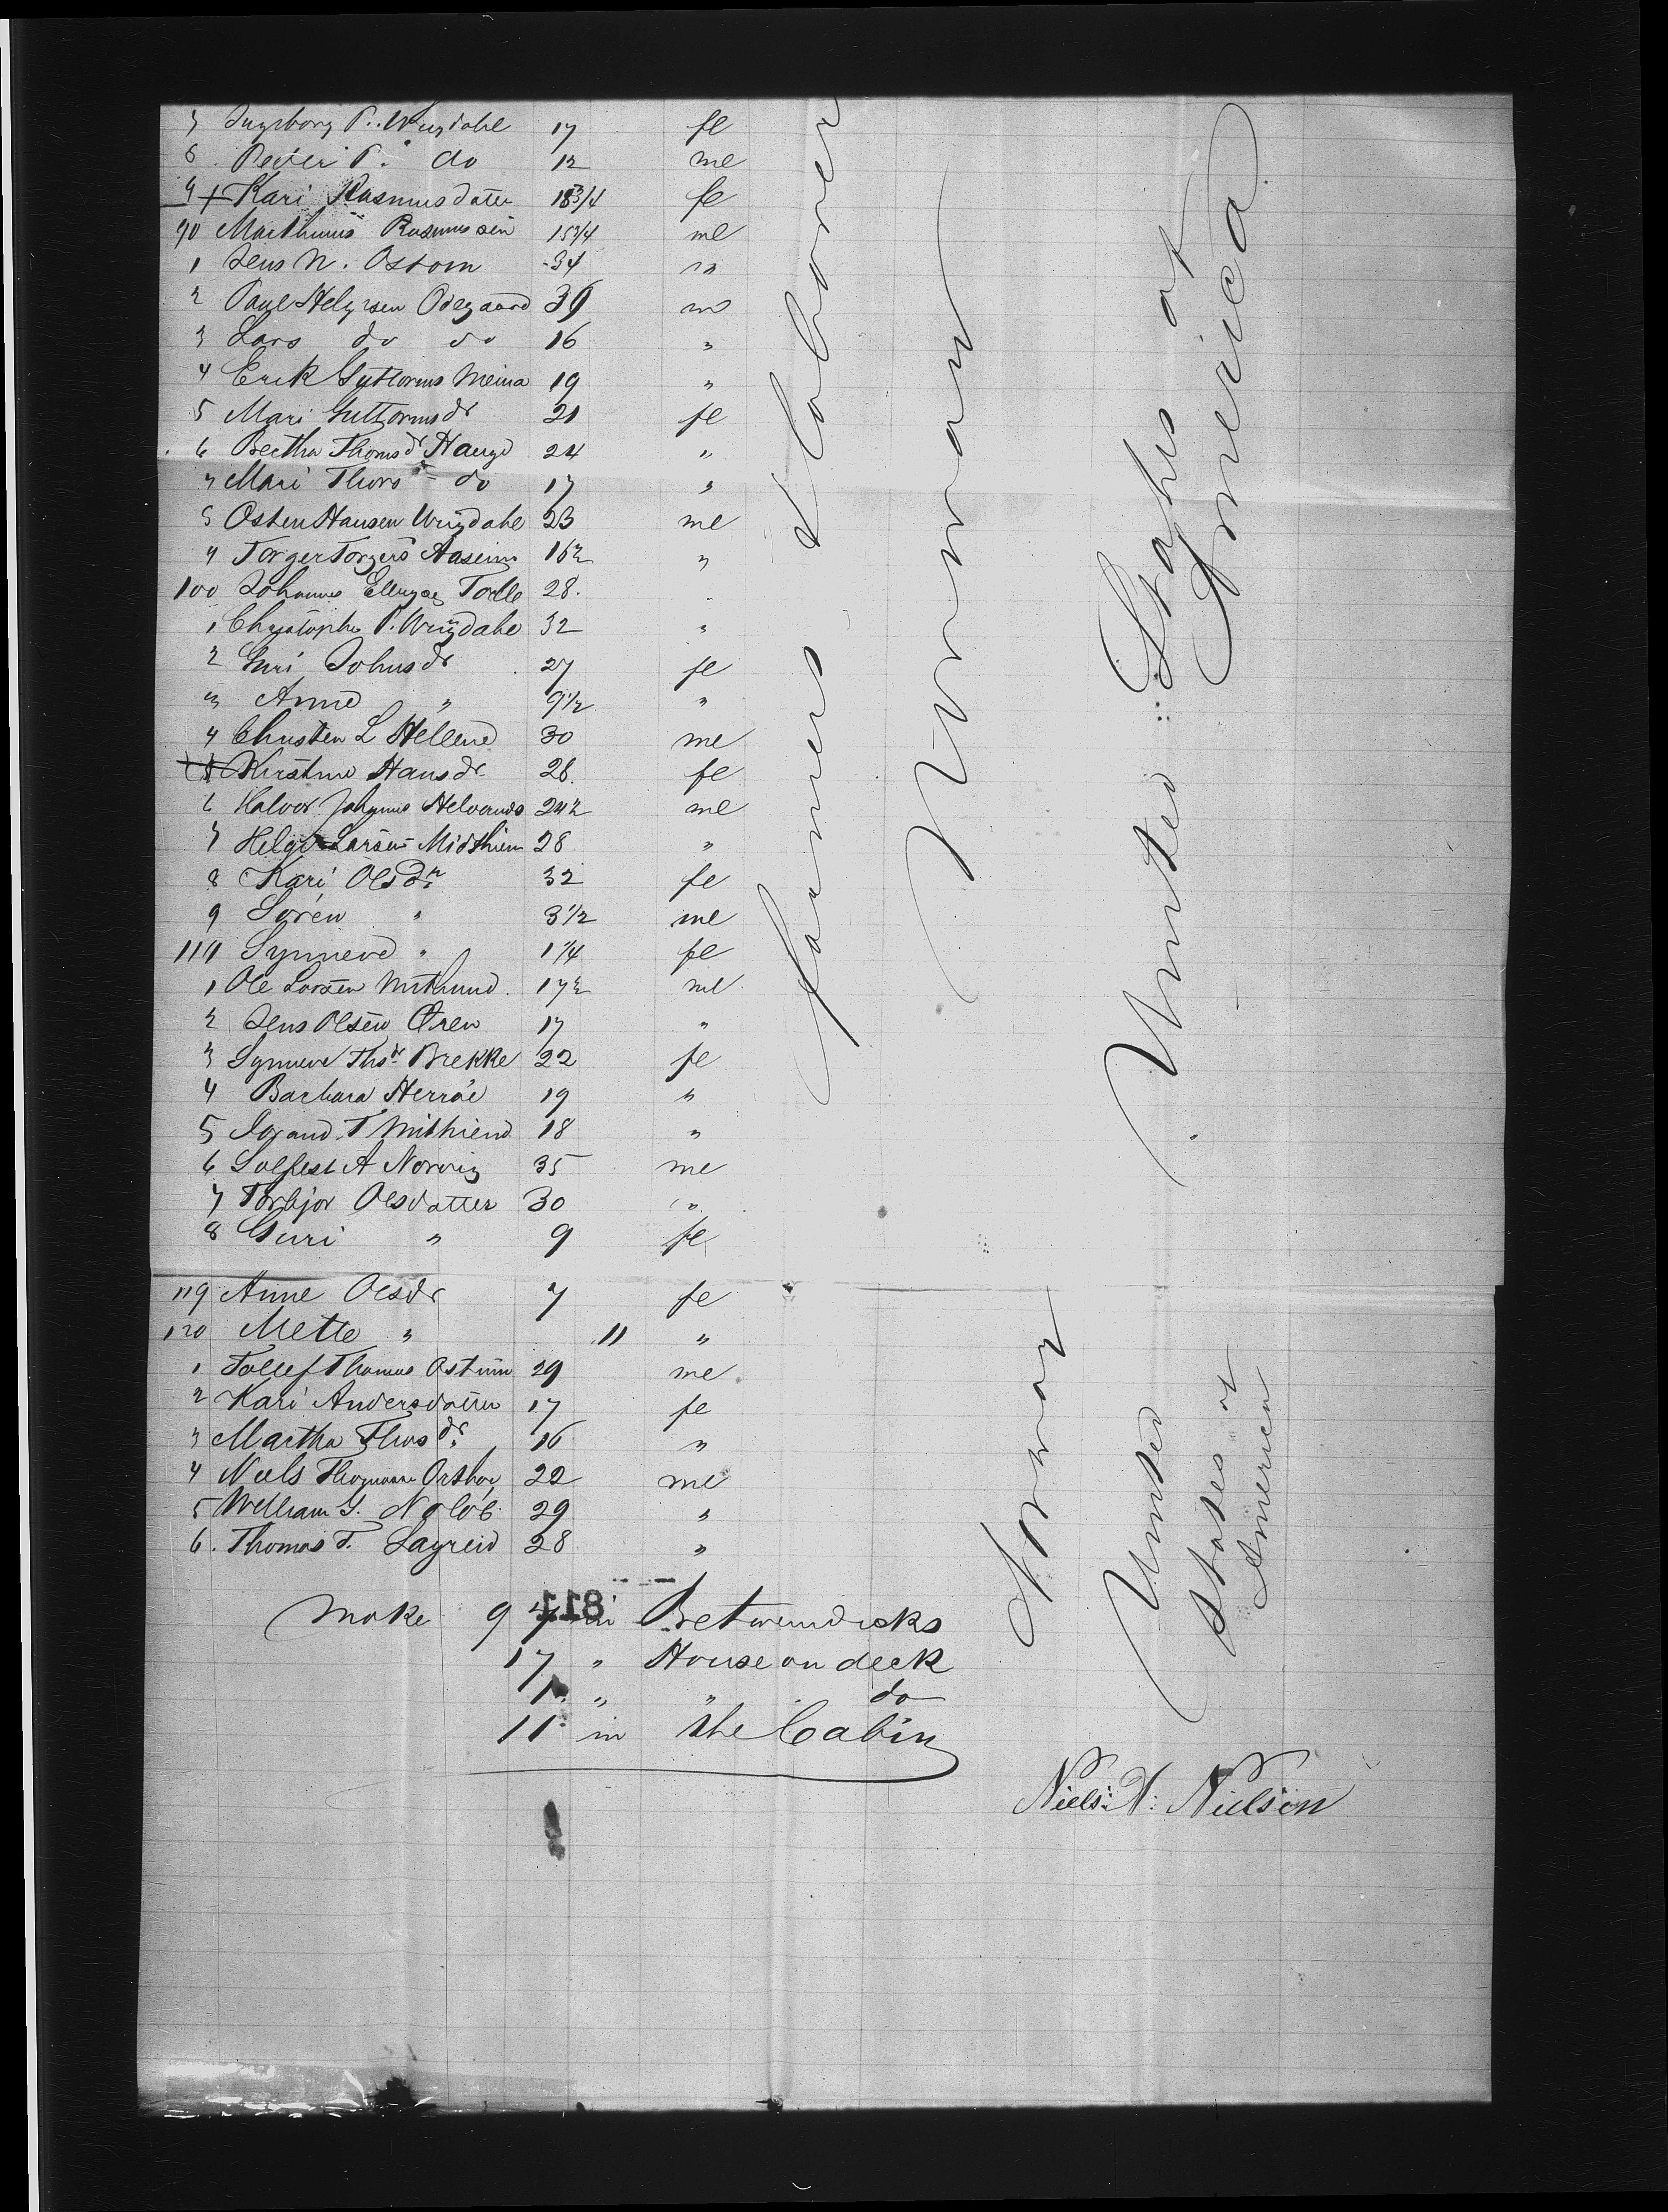 7 Ingeborg P. Wrigdahl 17 fe
8 Peder P. do 12 me
9 + Kari Rasmusdatter 18 3/4 fe
90 Marthinus Rasmussen 15 3/4 me
1 Jens N. Ostom 34 m
2 Paul Helgesen Odegaard 39 m
3 Lars do do 16 "
4 Erik Guttorms Meina 19 "
5 Mari Guttormsdr 21 fe
6 Bertha Thomsdr Hauge 24 "
7 Mari Thorsdr do 17 "
8 Osten Hansen Wrigdahl 23 me
9 Torger Torgers Aaseim 16½ "
100 Johannes Todle 28.
1 Christopher P. Wrigdahl 32 "
2 Guri Johnsdr 27 fe
3 Anne " 9½ "
4 Christen L Hellene 30 me
5 Kirstine Hansdr 28. fe
6 Halvor 24½ me
7 Helge Larsen Midthien 28 "
8 Kari Olsdr 32 fe
9 Soren " 3½ me
110 Synneve " 1¼ fe
1 Ole Larsen 17½ me
2 Jens Olsen Oren 17 "
3 Synneve Thsdr Brekke 22 fe
4 Barbara Herräe 19 "
5 T Mithiend 18 "
6 A Norvig 35 me
7 Torbjor Olsdatter 30 "
8 Guri " 9 fe
119 Anne Olsdr 7 fe
120 Mette " 11 "
1 Tollef Thomas 29 me
2 Kari Andersdatter 17 fe
3 Martha Thosdr. 16 "
4 Niels 22 me
5 William G. 29 "
6. Thomas T. Layreid 28 "
farmers & laborer
Norway
United Stathes of
America
Norway
United
States of
America
make 97 in Betweendecks
118
17 " House on deck
1. " " do
11 in the Cabin
Niels: N: Nielsen